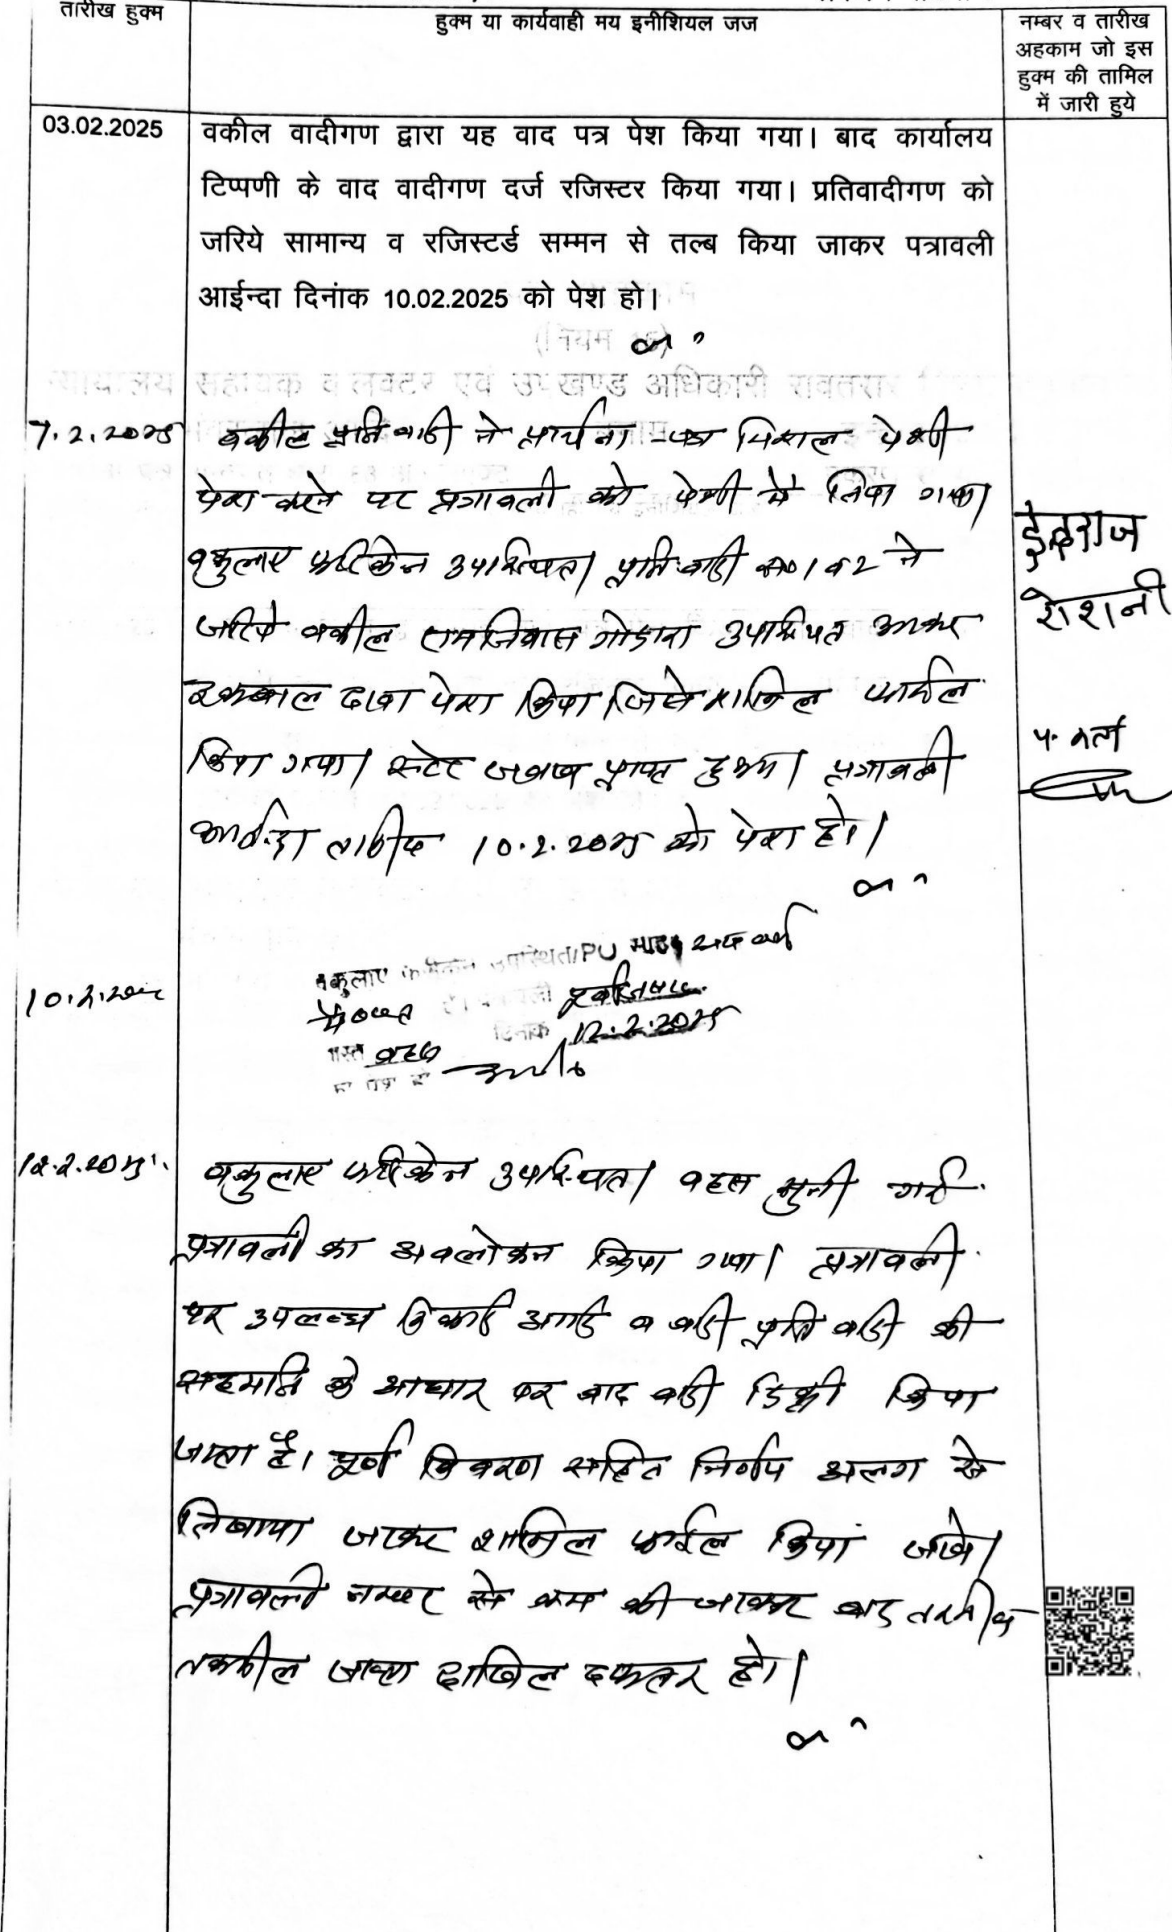 तारीख हुक्म
हुक्म या कार्यवाही मय इनीशियल जज
नम्बर व तारीख
अहकाम जो इस
हुक्म की तामिल
में जारी हुये
03.02.2025
वकील वादीगण द्वारा यह वाद पत्र पेश किया गया। बाद कार्यालय
टिप्पणी के वाद वादीगण दर्ज रजिस्टर किया गया। प्रतिवादीगण को
जरिये सामान्य व रजिस्टर्ड सम्मन से तल्ब किया जाकर पत्रावली
आईन्दा दिनांक 10.02.2025 को पेश हो।
7.2.2025
वकील प्रतिवादी ने प्रार्थना-पत्र मिसल पेशी
पेश करने पर पत्रावली को पेशी में लिया गया।
वकुलाए फरिकेन उपस्थित। प्रतिवादी सं० 1 व 2 ने
जरिये वकील रामनिवास गोदारा उपस्थित आकर
इकबाल दावा पेश किया जिसे शामिल फाईल
किया गया। स्टेट जवाब प्राप्त हुआ। पत्रावली
आईन्दा तारीख 10.2.2025 को पेश हो।
रोशनी
10.2.2025
वकुलाए फरिकेन उपस्थित/PO
पत्रावली
दिनांक 12.2.2025
वास्ते बहस
को पेश हो
12.2.2025
वकुलाए फरिकेन उपस्थित। बहस सुनी गई
पत्रावली का अवलोकन किया गया। पत्रावली
पर उपलब्ध रिकार्ड आदि व वादी प्रतिवादी की
सहमति के आधार पर वाद वादी डिक्री किया
जाता है। पूर्ण विवरण सहित निर्णय अलग से
लिखाया जाकर शामिल फाईल किया जावे।
पत्रावली नम्बर से कम की जाकर बाद तरतीब
तकमील जाब्ता दाखिल दफ्तर हो।